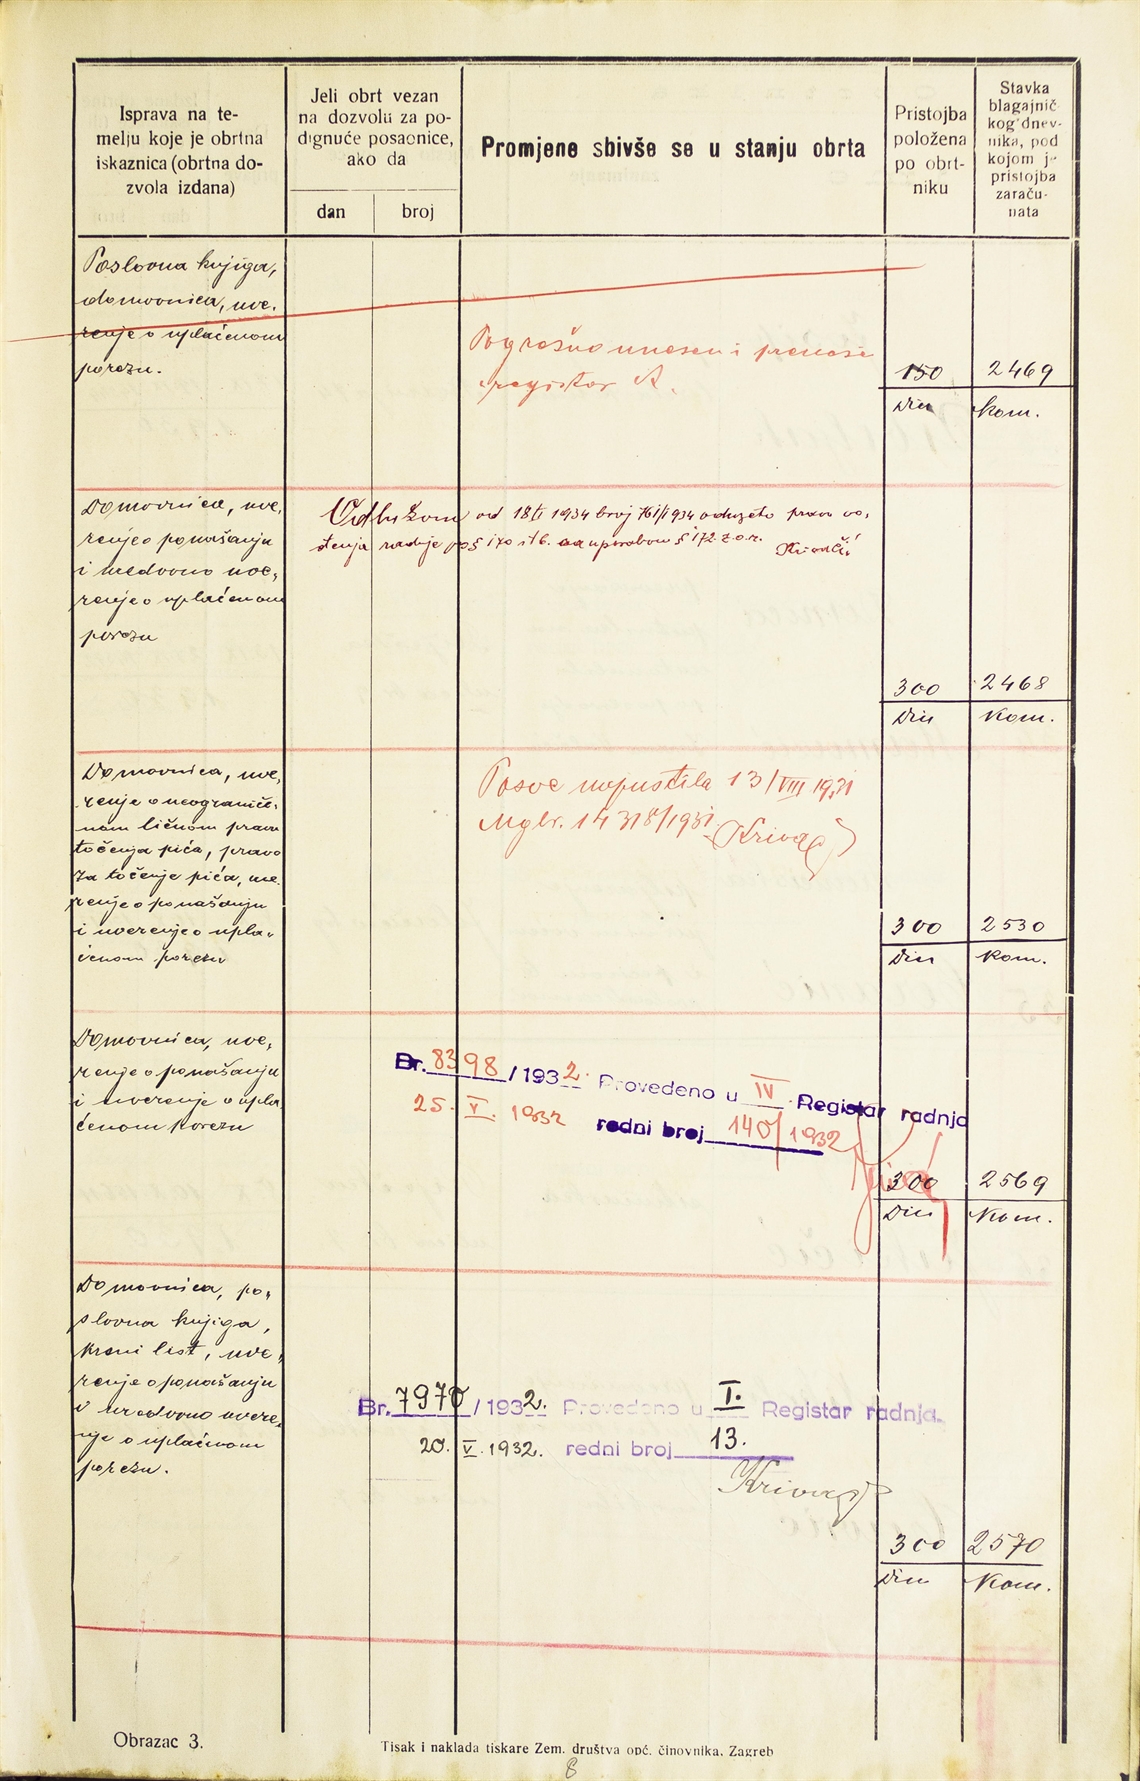 Isprava na te-
melju koje je obrtna
iskaznica (obrtna do-
zvola izdana)
Jeli obrt vezan
na dozvolu za po-
dignuće posaonice,
ako da
dan
broj
Promjene sbivše se u stanju obrta
Pristojba
položena
po obrt-
niku
Stavka
blagajnič-
kog dnev-
nika, pod
kojom je
pristojba
zaraču-
nata
Poslovna knjiga,
domovnica, uve-
renje o uplaćenom
porezu.
Pogrešno unesen i prenosi
registar A.
150
Din
2469
kom.
Domovnica, uve-
renje o ponašanju
i uredovno uve-
renje o uplaćenom
porezu
Odlukom od 18/I 1934 broj 761/1934 oduzeto pravo vo-
đenja radnje po § 170 st 6. sa uporabom § 172 z.o.r.
300
Din
2468
Kom.
Domovnica, uve-
renje o neograniče-
nom ličnom pravu
točenja pića, pravo
za točenje pića, uve-
renje o ponašanju
i uverenje o upla-
ćenom porezu
Posve napustila 13/VIII 1931
Mgbr. 14318/1931. Krivač
300
Din
2530
Kom.
Domovnica, uve-
renje o ponašanju
i uverenje o upla-
ćenom porezu
Br. 8398/1932. Provedeno u IV Registar radnja
25. V. 1932 redni broj 140/1932
300
Din
2569
Kom.
Domovnica, po-
slovna knjiga,
krsni list, uve-
renje o ponašanju
i uredovno uvere-
nje o uplaćenom
porezu.
Br. 7970/1932. Provedeno u I. Registar radnja.
20. V. 1932. redni broj 13.
Krivač
300
Din
2570
Kom.
Obrazac 3.
Tisak i naklada tiskare Zem. društva opć. činovnika, Zagreb
8